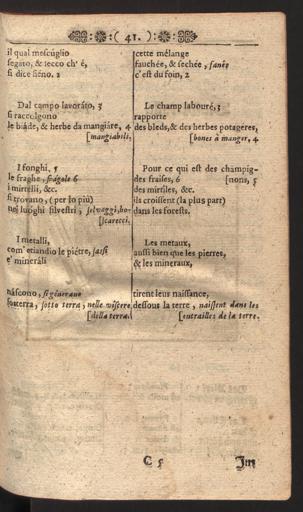 ( 41. )
il qual mescúglio
segáto, & secco ch' é,
si dice fiéno. 2
Dal campo lavoráto, 3
si raccolgono
le biáde, & herbe da mangiáre, 4
[mangiabili.
I fonghi, 5
le fraghe, frágole 6
i mirtelli, &c.
si trovano, (per lo più)
nei luoghi silvestri, selvaggi, bos-
[scarecci.
I metalli,
com' etiandio le piétre, sassi
e' mineráli
náscono, si génerano
sotterra, sotto terra, nelle viscere
[della terra.
cette mélange
fauchée, & sechée, fanée
c'est du foin, 2
Le champ labouré, 3
rapporte
des bleds, & des herbes potageres,
[bones à manger, 4
Pour ce qui est des champig-
[nons, 5
des fraises, 6
des mirtiles, &c.
ils croissent (la plus part)
dans les forests.
Les metaux,
aussi bien que les pierres,
& les mineraux,
tirent leur naissance,
dessous la terre, naissent dans les
[entrailles de la terre.
C 5
Im